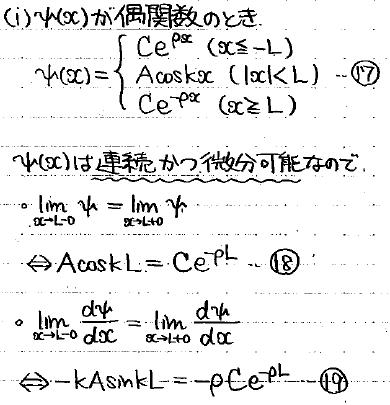 (i) ψ(x)が偶関数のとき.
ψ(x) = { Ce^{ρx} (x≦-L)
A cos kx (|x|<L) …⑰
Ce^{-ρx} (x≧L)
ψ(x)は連続かつ微分可能なので.
◦ lim_{x→L-0} ψ = lim_{x→L+0} ψ
⇔ A cos kL = Ce^{-ρL} …⑱
◦ lim_{x→L-0} dψ/dx = lim_{x→L+0} dψ/dx
⇔ -kA sin kL = -ρCe^{-ρL} …⑲